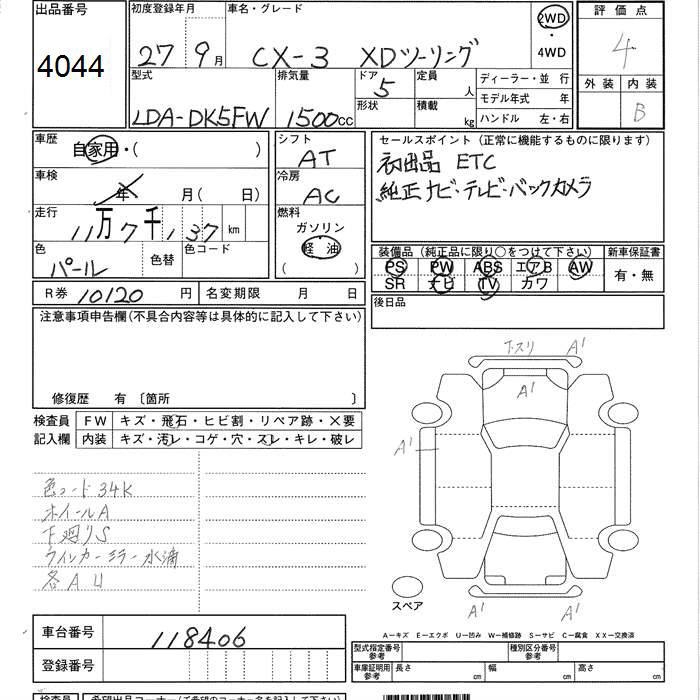 出品番号 初度登録年月 車名・グレード 評価点
4044 27 9月 CX-3 XDツーリング 2WD ・ 4WD 4
型式 排気量 ドア 定員 ディーラー・並行 外装 内装
LDA-DK5FW 1500cc 5 人 モデル年式 年 B
形状 積載 kg ハンドル 左・右
車歴 自家用・( ) シフト AT セールスポイント (正常に機能するものに限ります)
初出品 ETC
純正ナビ・テレビ・バックカメラ
車検 年 月( 日) 冷房 AC
走行 11万7千137km 燃料 ガソリン 軽油 ( )
色 パール 色替 色コード
装備品 (純正品に限り○をつけて下さい) 新車保証書
PS PW ABS エアB AW 有・無
SR ナビ TV カワ
R券 10120 円 名変期限 月 日 後日品
注意事項申告欄(不具合内容等は具体的に記入して下さい)
修復歴 有 〔箇所 〕
検査員 FW キズ・飛石・ヒビ割・リペア跡・×要
記入欄 内装 キズ・汚レ・コゲ・穴・スレ・キレ・破レ
下スリ A1
A1
A1
色コード34K
ホイールA
下廻りS
ウインカーミラー水滴
各AU
スペア
A1 A1
A－キズ E－エクボ U－凹み W－補修跡 S－サビ C－腐食 XX－交換済
車台番号 118406
型式指定番号 参考 種別区分番号 参考
登録番号
車庫証明用 参考 長さ cm 幅 cm 高さ cm
検査員 希望出品コーナー(ご希望のコーナー名を記入して下さい)